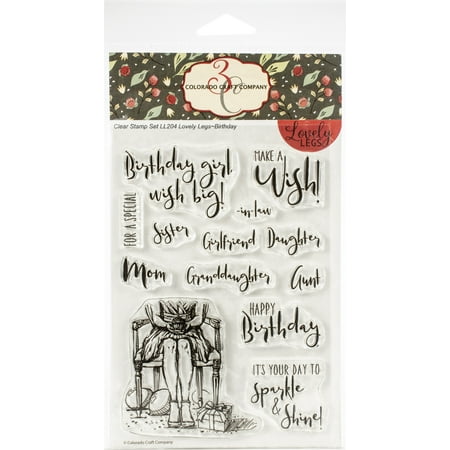 3C
COLORADO CRAFT COMPANY
Clear Stamp Set LL204 Lovely Legs~Birthday
Lovely
LEGS
Birthday girl,
wish big!
MAKE A
Wish!
FOR A SPECIAL
-in-law
Sister
Girlfriend
Daughter
Mom
Granddaughter
Aunt
HAPPY
Birthday
IT'S YOUR DAY TO
Sparkle
&
Shine!
©Colorado Craft Company